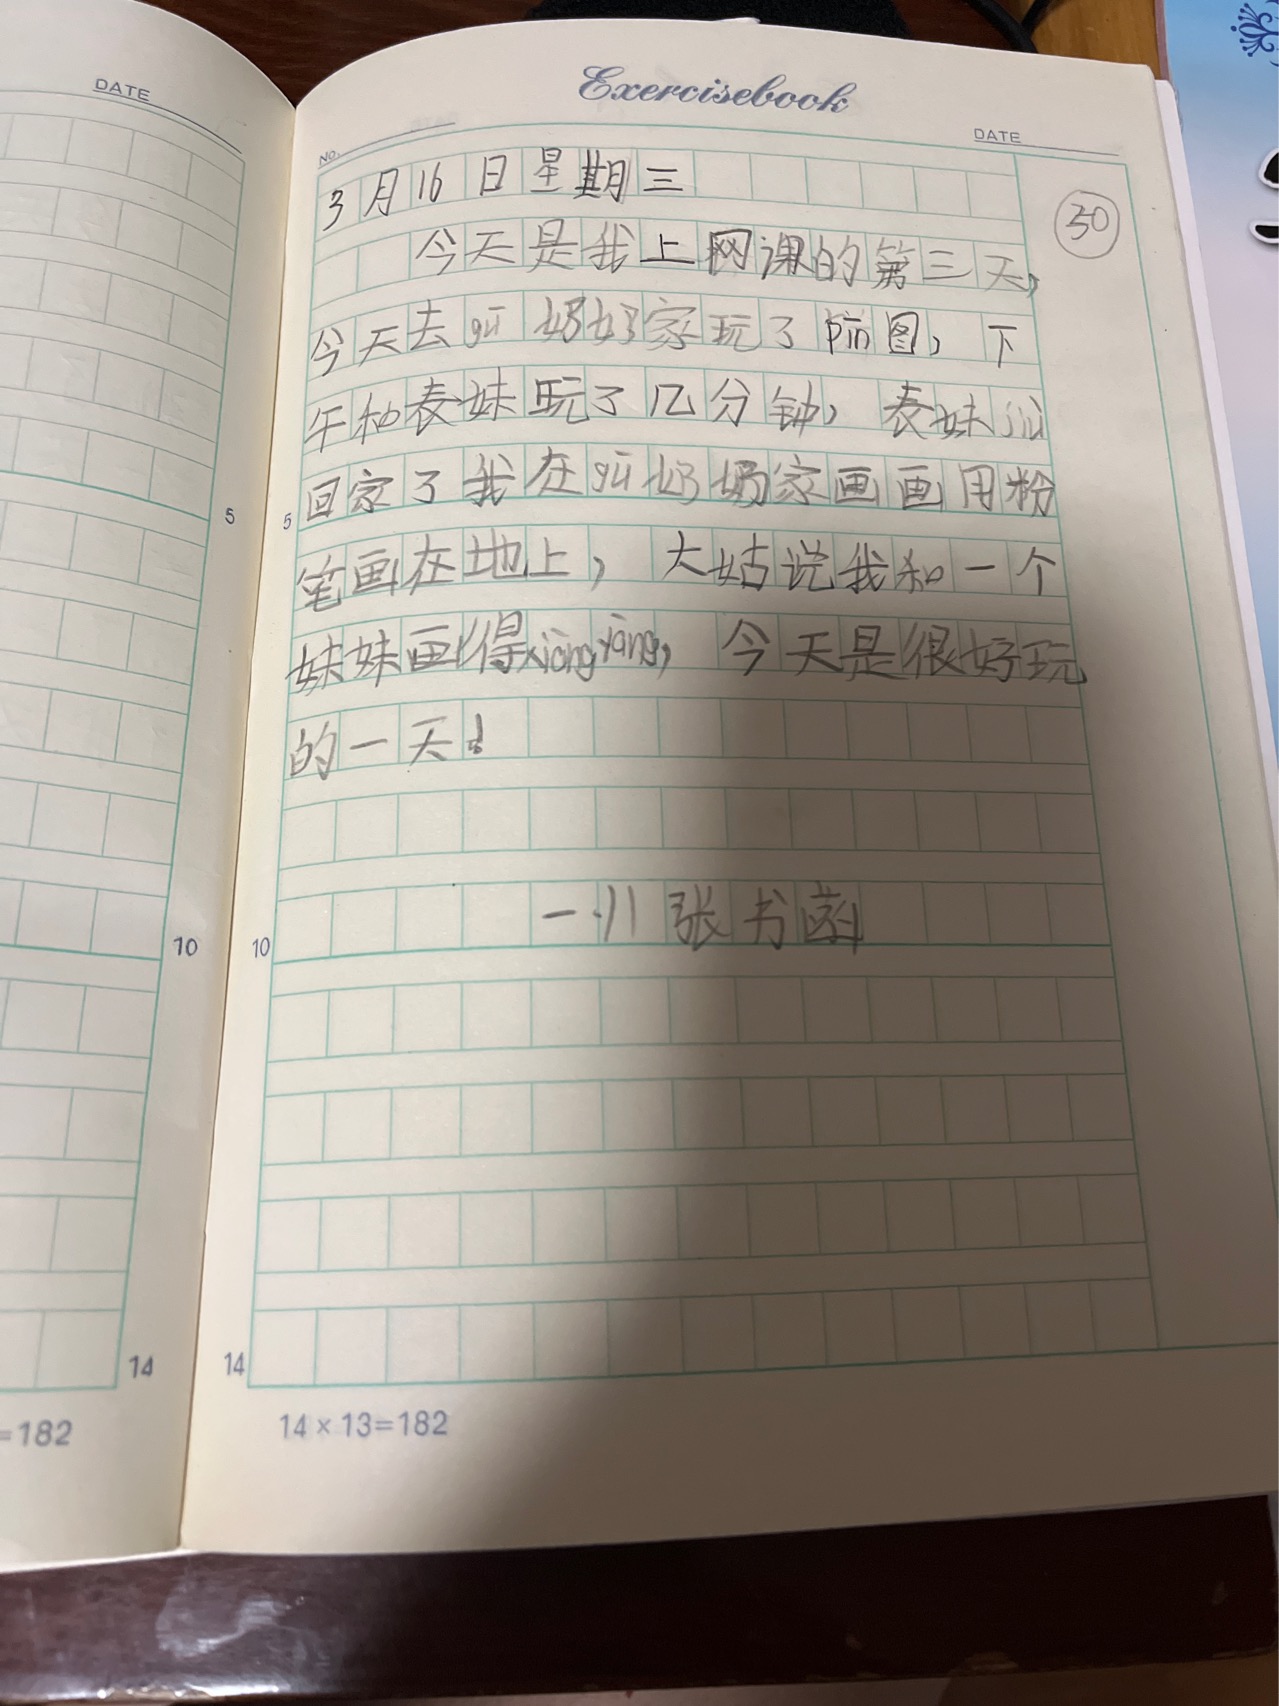 DATE
Exercisebook
NO.
DATE
3月16日星期三
30
今天是我上网课的第三天，
今天去gū奶奶家玩了pīn图，下
午和表妹玩了几分钟，表妹jiù
回家了我在gū奶奶家画画用粉
笔画在地上，大姑说我和一个
妹妹画得xiāngxiàng，今天是很好玩
的一天！
一.11张书菡
5
5
10
10
14
14
=182
14×13=182